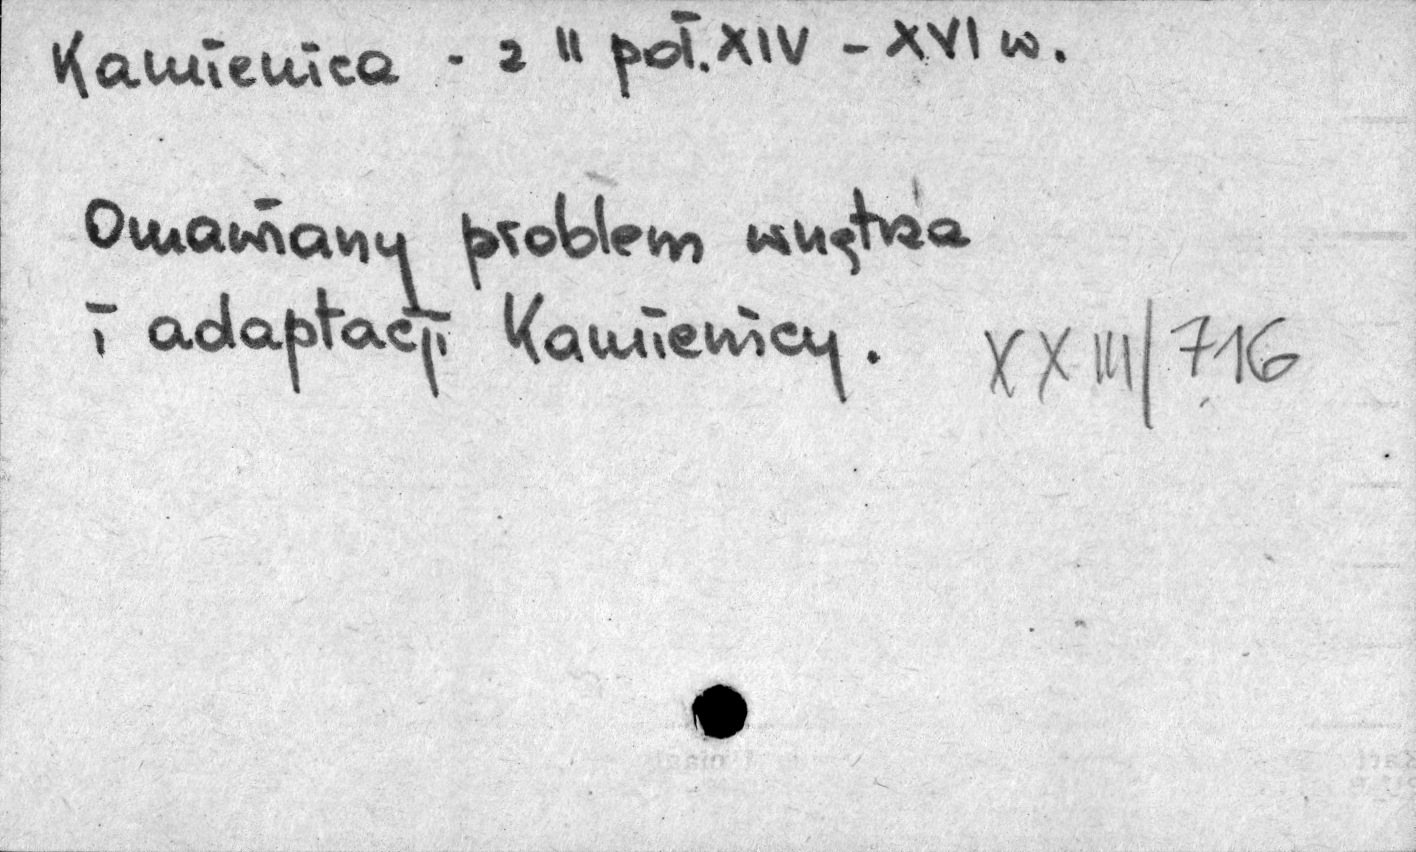 Kamienica - z II poł. XIV - XVI w.
Omawiany problem wnętrza
i adaptacji Kamienicy.
XXIII/716